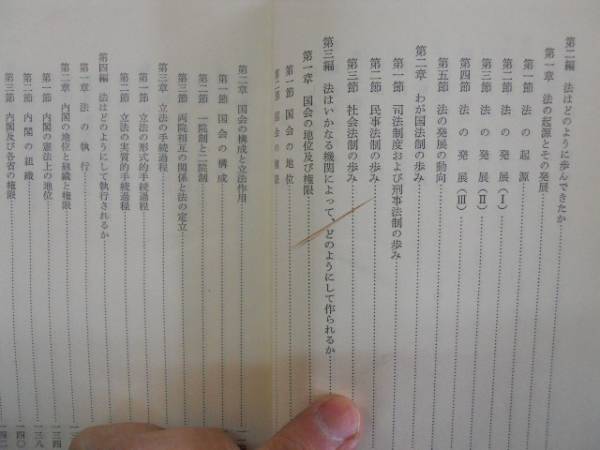 第二編 法はどのように歩んできたか
第一章 法の起源とその発展
第一節 法の起源
第二節 法の発展(Ⅰ)
第三節 法の発展(Ⅱ)
第四節 法の発展(Ⅲ)
第五節 法の発展の動向
第二章 わが国法制の歩み
第一節 司法制度および刑事法制の歩み
第二節 民事法制の歩み
第三節 社会法制の歩み
第三編 法はいかなる機関によって、どのようにして作られるか
第一章 国会の地位及び権限
第一節 国会の地位
第二節 国会の権限
第二章 国会の構成と立法作用
第一節 国会の構成
第二節 一院制と二院制
第三節 両院相互の関係と法の定立
第三章 立法の手続過程
第一節 立法の形式的手続過程
第二節 立法の実質的手続過程
第四編 法はどのようにして執行されるか
第一章 法の執行
第二章 内閣の地位と組織と権限
第一節 内閣の憲法上の地位
第二節 内閣の組織
第三節 内閣及び各省の権限